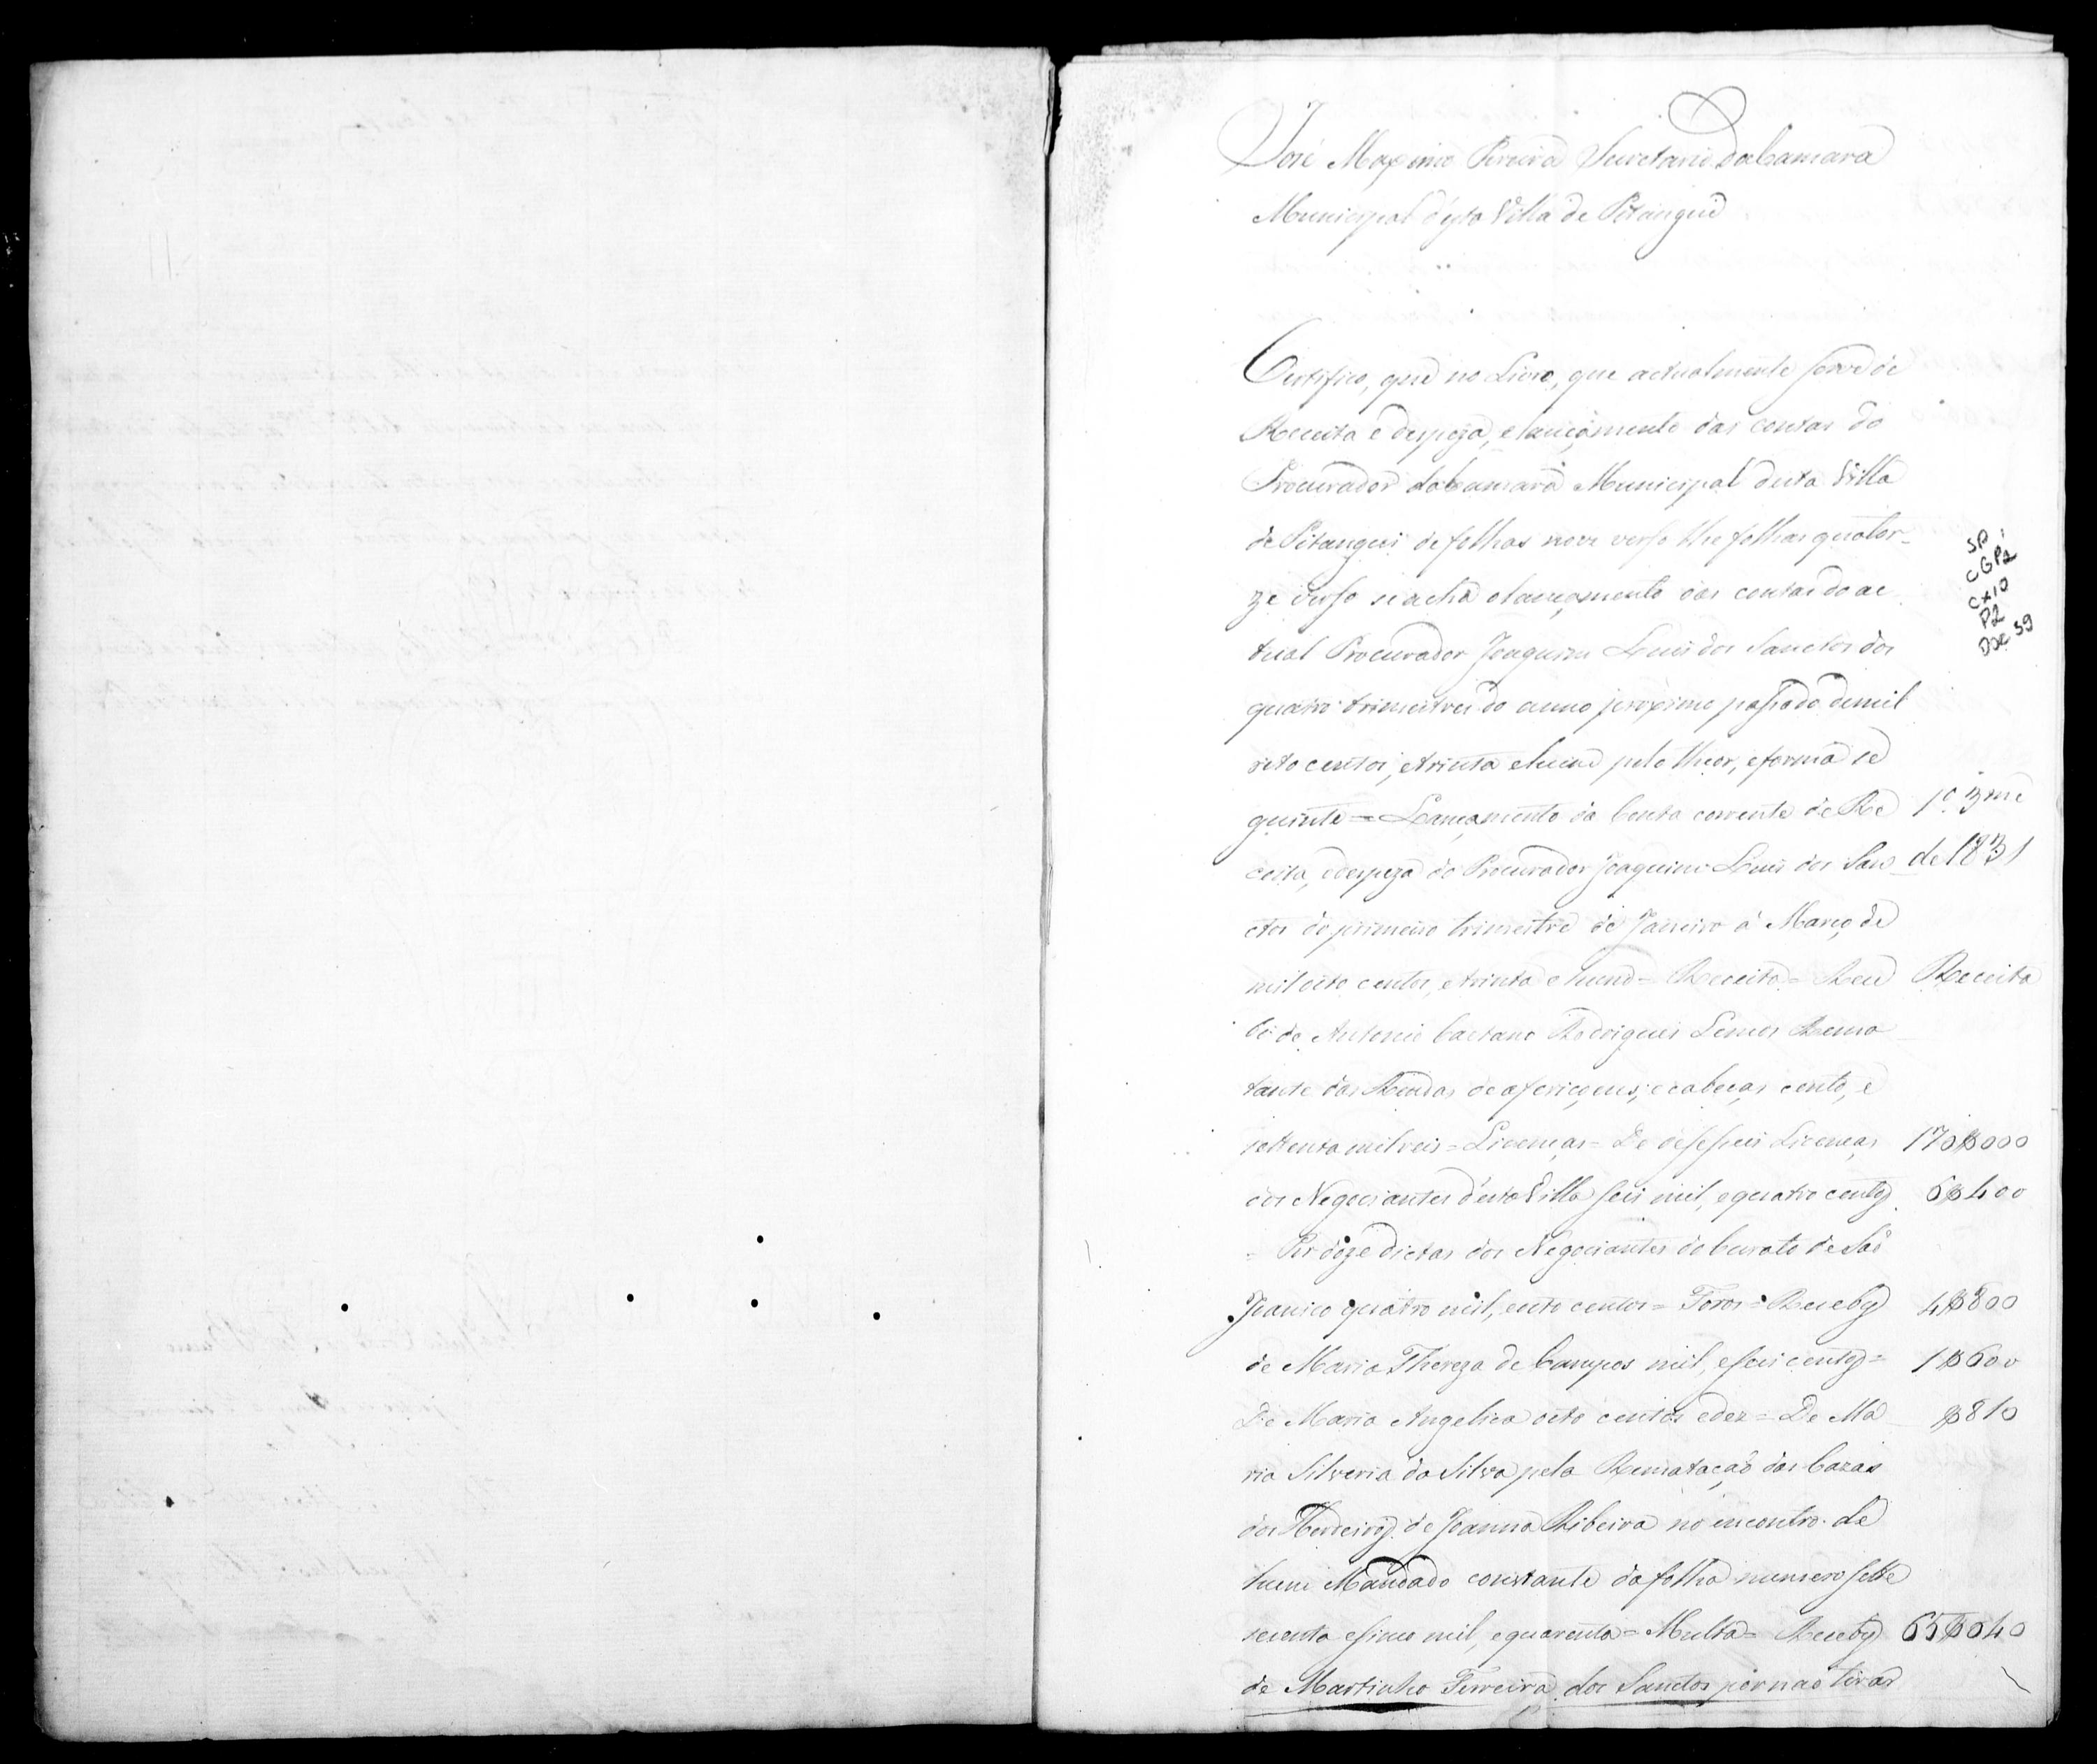 José Maximo Pereira Secretario da Camara
Municipal d'esta Villa de Pitangui
Certifico, que no Livro, que actualmente serve de
Receita e despeza, e lançamento das contas do
Procurador da Camara Municipal desta Villa
de Pitangui de folhas nove verso the folhas quator-
ze verso se acha o lançamento das contas do ac
tual Procurador Joaquim Luis dos Sanctos dos
quatro trimestres do anno proximo passado de mil
oito centos, e trinta e hum pelo theor, e forma se
guinte = Lançamento da Conta corrente de Re
ceita, e despeza do Procurador Joaquim Luis dos San
ctos do primeiro trimestre de Janeiro á Março de
mil oito centos, e trinta e hum = Receita = Rece
bi de Antonio Caetano Rodrigues Lemos Rema
tante das Rendas de aferiçoens, e cabeças cento, e
settenta mil reis = Licenças = De desesseis Licenças
dos Negociantes d'esta Villa seis mil, e quatro centos
= Por doze dictas dos Negociantes do Curato de São
Joanico quatro mil, oito centos = Foros = Recebi
de Maria Thereza de Campos mil, e seis centos =
De Maria Angelica oito centos e dez = De Ma
ria Silveria da Silva pela Rematação das Cazas
dos Herdeiros de Joanna Ribeira no encontro de
hum Mandado constante da folha numero sette
secenta e sinco mil, e quarenta = Multa = Recebi
de Martinho Ferreira dos Sanctos por não tirar
SP
CGP2
CX10
P2
Doc 59
1º 3me
de 1831
Receita
170$000
6$400
4$800
1$600
$810
65$040